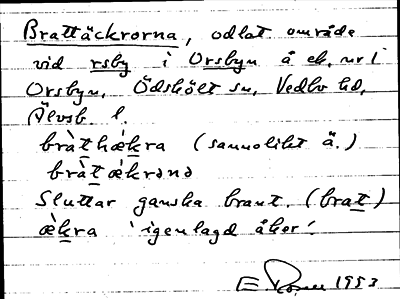 Brattäckrorna, odlat område
vid rsby i Orsbyn å ek. nr 1
Orsbyn, Ödskölt sn, Vedbo hd,
Älvsb. l.
bràthǽkra (sannolikt ä.)
bràtækrənə
Sluttar ganska brant. (brat)
ækra 'igenlagd åker'.
E 1953